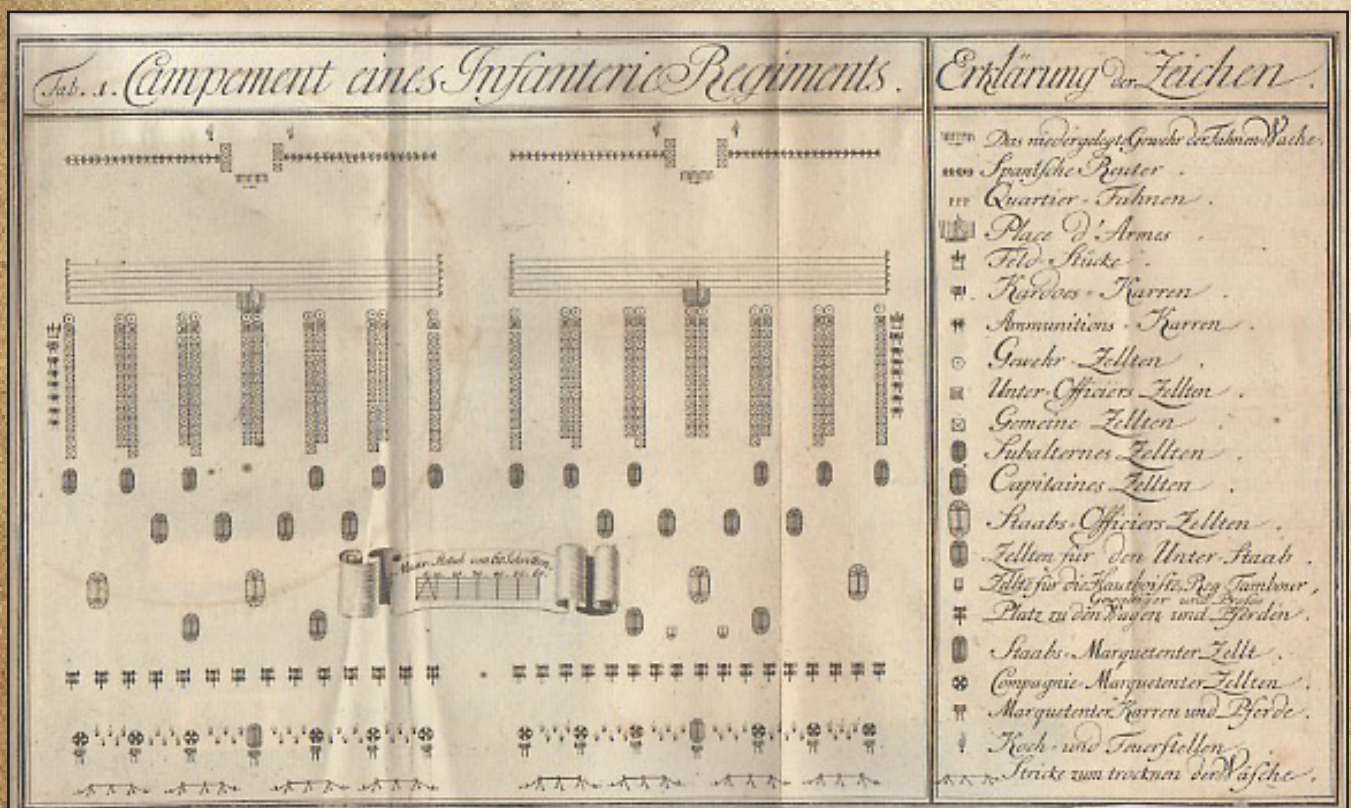 Tab. 1. Campement eines Infanterie Regiments.
Erklärung der Zeichen.
Das niedergelegte Gewehr der Fahnen Wache.
Spanische Reuter.
Quartier-Fahnen.
Place d'Armes
Feld-Stücke.
Kardoes-Karren.
Ammunitions-Karren.
Gewehr-Zellten
Unter-Officiers Zellten.
Gemeine Zellten
Subalternes Zellten.
Capitaines Zellten.
Staabs-Officiers Zellten.
Zellten für den Unter-Staab.
Zellte für die Hautboiste, Reg. Tambour,
und
Platz zu den Wagen und Pferden.
Staabs-Marquetenter Zellt.
Compagnie-Marquetenter Zellten.
Marquetenter Karren und Pferde.
Koch- und Feuerstellen
Stricke zum trocknen der Wäsche.
von 60 Schritten.